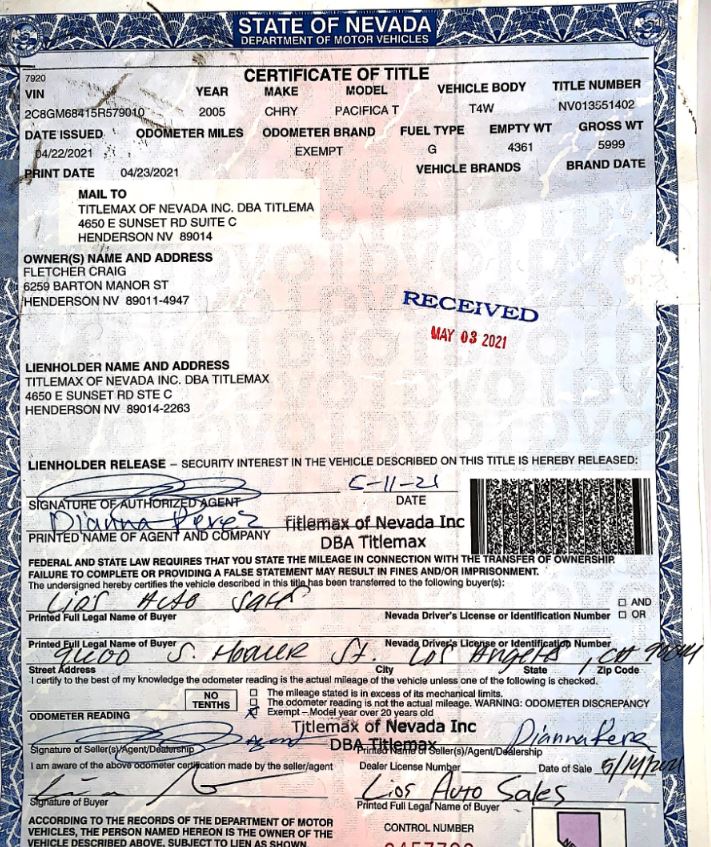 STATE OF NEVADA
DEPARTMENT OF MOTOR VEHICLES
CERTIFICATE OF TITLE
7920
VIN YEAR MAKE MODEL VEHICLE BODY TITLE NUMBER
2C8GM68415R579010 2005 CHRY PACIFICA T T4W NV013551402
DATE ISSUED ODOMETER MILES ODOMETER BRAND FUEL TYPE EMPTY WT GROSS WT
04/22/2021 EXEMPT G 4361 5999
PRINT DATE 04/23/2021 VEHICLE BRANDS BRAND DATE
MAIL TO
TITLEMAX OF NEVADA INC. DBA TITLEMA
4650 E SUNSET RD SUITE C
HENDERSON NV 89014
OWNER(S) NAME AND ADDRESS
FLETCHER CRAIG
6259 BARTON MANOR ST
HENDERSON NV 89011-4947
RECEIVED
MAY 03 2021
LIENHOLDER NAME AND ADDRESS
TITLEMAX OF NEVADA INC. DBA TITLEMAX
4650 E SUNSET RD STE C
HENDERSON NV 89014-2263
LIENHOLDER RELEASE – SECURITY INTEREST IN THE VEHICLE DESCRIBED ON THIS TITLE IS HEREBY RELEASED:
5-11-21
SIGNATURE OF AUTHORIZED AGENT DATE
Dianna Perez Titlemax of Nevada Inc
PRINTED NAME OF AGENT AND COMPANY DBA Titlemax
FEDERAL AND STATE LAW REQUIRES THAT YOU STATE THE MILEAGE IN CONNECTION WITH THE TRANSFER OF OWNERSHIP.
FAILURE TO COMPLETE OR PROVIDING A FALSE STATEMENT MAY RESULT IN FINES AND/OR IMPRISONMENT.
The undersigned hereby certifies the vehicle described in this title has been transferred to the following buyer(s):
Lios Auto Sales
AND
Printed Full Legal Name of Buyer Nevada Driver's License or Identification Number OR
Printed Full Legal Name of Buyer Nevada Driver's License or Identification Number
S. Hoover St. Los Angeles, CA
Street Address City State Zip Code
I certify to the best of my knowledge the odometer reading is the actual mileage of the vehicle unless one of the following is checked.
NO TENTHS
The mileage stated is in excess of its mechanical limits.
The odometer reading is not the actual mileage. WARNING: ODOMETER DISCREPANCY
Exempt – Model year over 20 years old
ODOMETER READING
Titlemax of Nevada Inc
Agent DBA Titlemax Dianna Perez
Signature of Seller(s)/Agent/Dealership Printed Name of Seller(s)/Agent/Dealership
I am aware of the above odometer certification made by the seller/agent Dealer License Number Date of Sale 5/14/2021
Lios Auto Sales
Signature of Buyer Printed Full Legal Name of Buyer
ACCORDING TO THE RECORDS OF THE DEPARTMENT OF MOTOR
VEHICLES, THE PERSON NAMED HEREON IS THE OWNER OF THE
VEHICLE DESCRIBED ABOVE, SUBJECT TO LIEN AS SHOWN.
CONTROL NUMBER